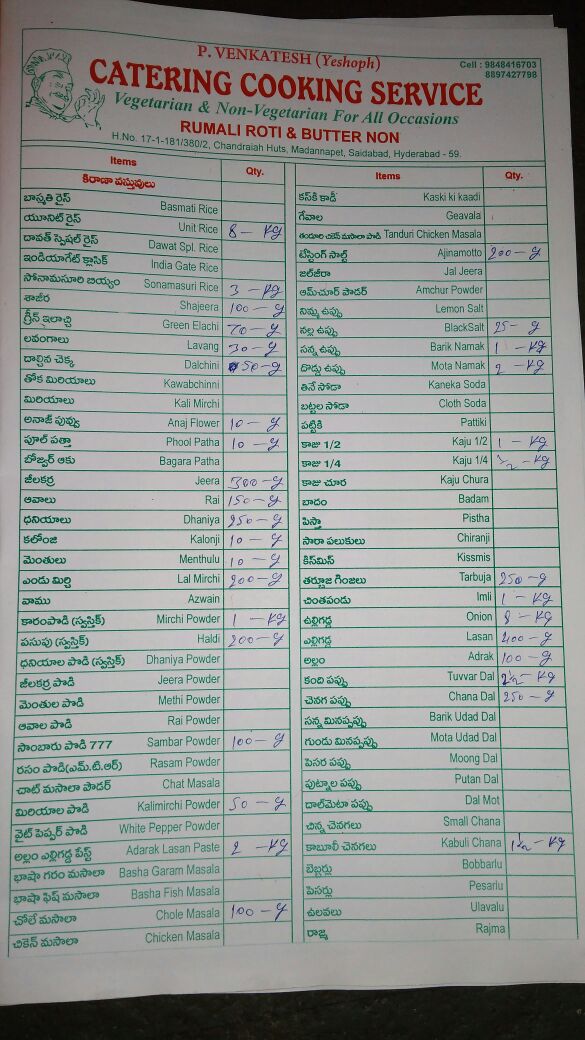 P. VENKATESH (Yeshoph)
Cell : 9848416703
8897427798
CATERING COOKING SERVICE
Vegetarian & Non-Vegetarian For All Occasions
RUMALI ROTI & BUTTER NON
H.No. 17-1-181/380/2, Chandraiah Huts, Madannapet, Saidabad, Hyderabad - 59.
Items Qty.
కిరాణా వస్తువులు
బాస్మతి రైస్ Basmati Rice
యూనిట్ రైస్ Unit Rice 8 - kg
దావత్ స్పెషల్ రైస్ Dawat Spl. Rice
ఇండియాగేట్ క్లాసిక్ India Gate Rice
సోనామసూరి బియ్యం Sonamasuri Rice 3 - kg
శాజీర Shajeera 100 - g
గ్రీన్ ఇలాచ్చి Green Elachi 70 - g
లవంగాలు Lavang 30 - g
దాల్చిన చెక్క Dalchini 50 - g
తోక మిరియాలు Kawabchinni
మిరియాలు Kali Mirchi
అనాజ్ పువ్వు Anaj Flower 10 - g
పూల్ పత్తా Phool Patha 10 - g
బోజ్వర్ ఆకు Bagara Patha
జీలకర్ర Jeera 300 - g
ఆవాలు Rai 150 - g
ధనియాలు Dhaniya 250 - g
కలోంజి Kalonji 10 - g
మెంతులు Menthulu 10 - g
ఎండు మిర్చి Lal Mirchi 200 - g
వాము Azwain
కారంపొడి (స్వస్తిక్) Mirchi Powder 1 - kg
పసుపు (స్వస్తిక్) Haldi 200 - g
ధనియాల పొడి (స్వస్తిక్) Dhaniya Powder
జీలకర్ర పొడి Jeera Powder
మెంతుల పొడి Methi Powder
ఆవాల పొడి Rai Powder
సాంబారు పొడి 777 Sambar Powder 100 - g
రసం పొడి(ఎమ్.టి.ఆర్) Rasam Powder
చాట్ మసాలా పౌడర్ Chat Masala
మిరియాల పొడి Kalimirchi Powder 50 - g
వైట్ పెప్పర్ పొడి White Pepper Powder
అల్లం ఎల్లిగడ్డ పేస్ట్ Adarak Lasan Paste 2 - kg
భాషా గరం మసాలా Basha Garam Masala
భాషా ఫిష్ మసాలా Basha Fish Masala
చోలే మసాలా Chole Masala 100 - g
చికెన్ మసాలా Chicken Masala
Items Qty.
కస్‌కి కాడీ Kaski ki kaadi
గేవాల Geavala
తందూరి చికెన్ మసాలా పొడి Tanduri Chicken Masala
టేస్టింగ్ సాల్ట్ Ajinamotto 200 - g
జల్‌జీరా Jal Jeera
ఆమ్‌చూర్ పౌడర్ Amchur Powder
నిమ్మ ఉప్పు Lemon Salt
నల్ల ఉప్పు BlackSalt 25 - g
సన్న ఉప్పు Barik Namak 1 - kg
దొడ్డు ఉప్పు Mota Namak 2 - kg
తినే సోడా Kaneka Soda
బట్టల సోడా Cloth Soda
పట్టికి Pattiki
కాజు 1/2 Kaju 1/2 1 - kg
కాజు 1/4 Kaju 1/4 1/2 - kg
కాజు చూర Kaju Chura
బాదం Badam
పిస్తా Pistha
సారా పలుకులు Chiranji
కిస్‌మిస్ Kissmis
తర్బూజ గింజలు Tarbuja 250 - g
చింతపండు Imli 1 - kg
ఉల్లిగడ్డ Onion 8 - kg
ఎల్లిగడ్డ Lasan 400 - g
అల్లం Adrak 100 - g
కంది పప్పు Tuvvar Dal 2 1/2 - kg
చెనగ పప్పు Chana Dal 250 - g
సన్న మినప్పప్పు Barik Udad Dal
గుండు మినప్పప్పు Mota Udad Dal
పెసర పప్పు Moong Dal
పుట్నాల పప్పు Putan Dal
దాల్‌మెటా పప్పు Dal Mot
చిన్న చెనగలు Small Chana
కాబూలీ చెనగలు Kabuli Chana 1 1/2 - kg
బెబ్బర్లు Bobbarlu
పెసర్లు Pesarlu
ఉలవలు Ulavalu
రాజ్మ Rajma